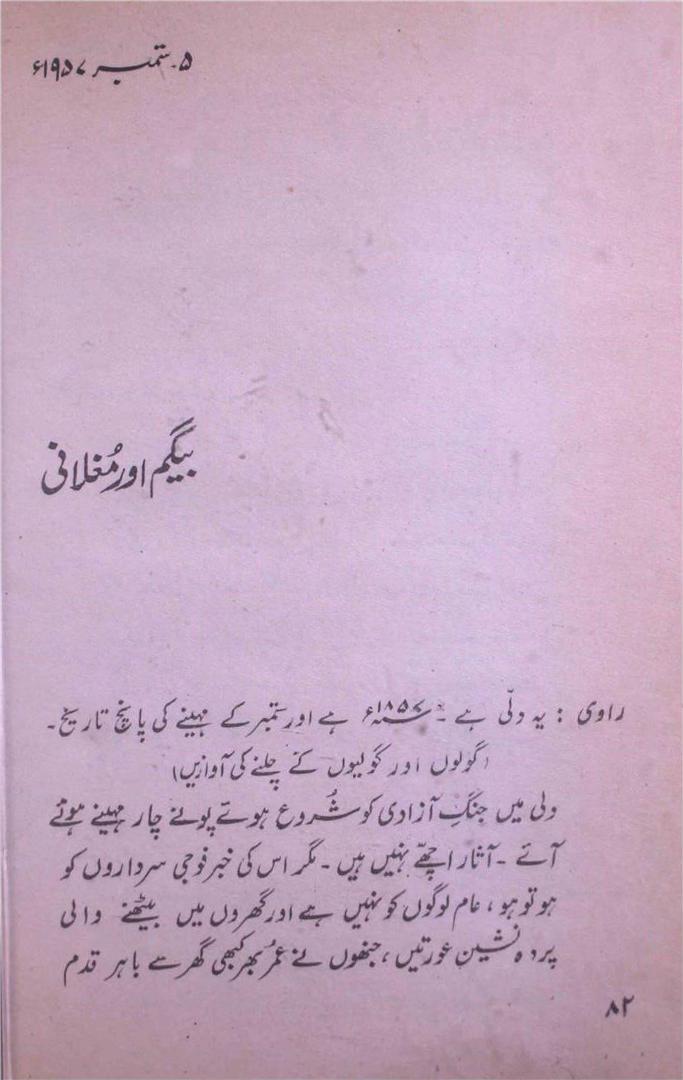 ۵۔ ستمبر ۱۹۵۷ء
بیگم اور مُغلانی
راوی : یہ دلّی ہے ۔ ۱۸۵۷ء ہے اور ستمبر کے مہینے کی پانچ تاریخ۔
(گولوں اور گولیوں کے چلنے کی آوازیں)
دلی میں جنگِ آزادی کو شُروع ہوتے پونے چار مہینے ہوتے
آئے ۔ آثار اچھّے نہیں ہیں ۔ مگر اس کی خبر فوجی سرداروں کو
ہو تو ہو ، عام لوگوں کو نہیں ہے اور گھروں میں بیٹھنے والی
پردہ نشین عورتیں ، جنھوں نے عمُر بھر کبھی گھر سے باہر قدم
۸۲